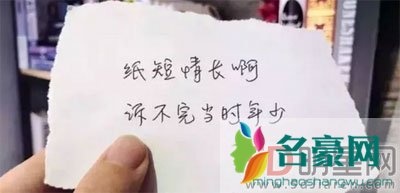 纸短情长啊
诉不完当时年少
名豪网
minghaoshangwu.com